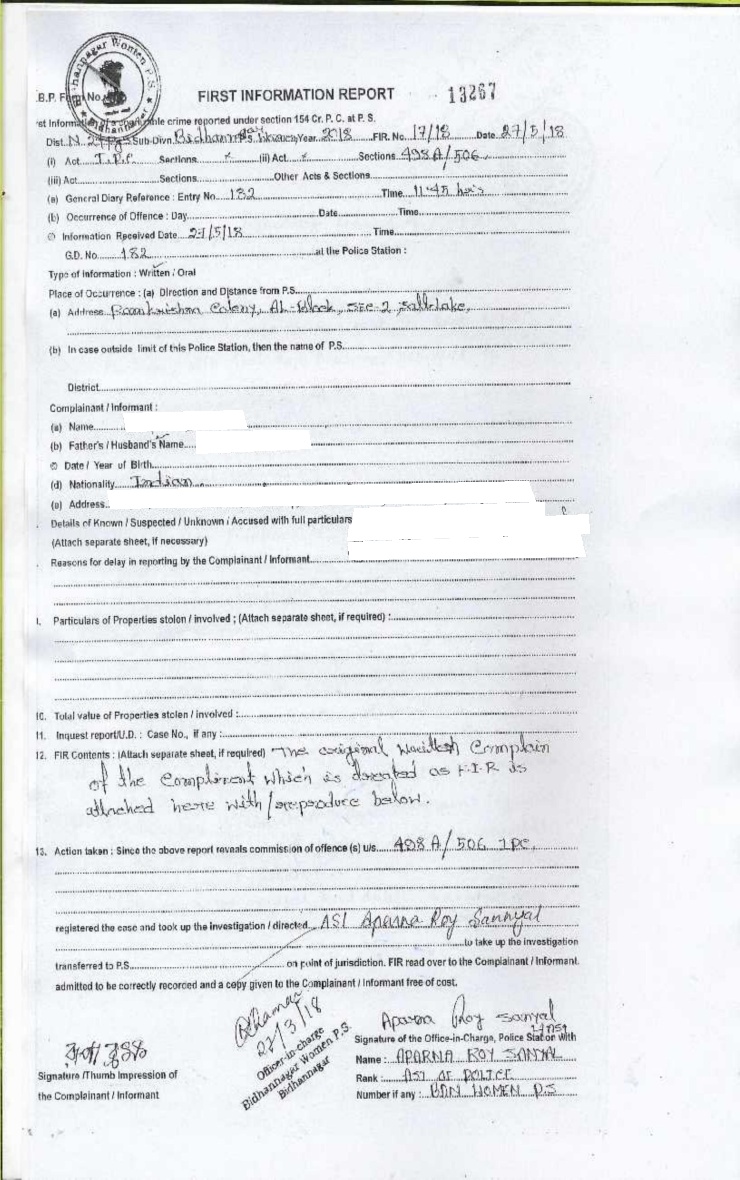 Bidhannagar Women P.S.
Bidhannagar
B.P. Form No.
FIRST INFORMATION REPORT
13267
st Information of a cognizable crime reported under section 154 Cr. P. C. at P. S.
Dist. N 24 Pgs Sub-Divn. Bidhannagar P.S. Women Year 2018 FIR. No. 17/18 Date 27/5/18
(i) Act I.P.C Sections x (ii) Act x Sections 498A/506
(iii) Act Sections Other Acts & Sections
(a) General Diary Reference : Entry No. 182 Time 11.45 hrs
(b) Occurrence of Offence : Day Date Time
© Information Received Date 27/5/18 Time
G.D. No. 182 at the Police Station :
Type of Information : Written / Oral
Place of Occurrence : (a) Direction and Distance from P.S.
(a) Address Ramkrishna Colony, AL-Block, SEC-2 Salt-Lake,
(b) In case outside limit of this Police Station, then the name of P.S.
District
Complainant / Informant :
(a) Name
(b) Father's / Husband's Name
© Date / Year of Birth
(d) Nationality Indian
(e) Address
Details of Known / Suspected / Unknown / Accused with full particulars
(Attach separate sheet, if necessary)
Reasons for delay in reporting by the Complainant / Informant
Particulars of Properties stolen / involved ; (Attach separate sheet, if required) :
10. Total value of Properties stolen / involved :
11. Inquest report/U.D. : Case No., if any :
12. FIR Contents : (Attach separate sheet, if required) The original Written Complain
of the Complinent which is dreated as F.I.R is
attached here with/reproduce below.
13. Action taken : Since the above report reveals commission of offence (s) u/s. 498A/506 IPC,
registered the case and took up the investigation / directed ASI Aparna Roy Sannyal
to take up the investigation
transferred to P.S. on point of jurisdiction. FIR read over to the Complainant / Informant.
admitted to be correctly recorded and a copy given to the Complainant / Informant free of cost.
27/3/18
Officer-in-charge
Bidhannagar Women P.S.
Bidhannagar
Aparna Roy Sanyal
Signature of the Office-in-Charge, Police Station with
Name : APARNA ROY SANYAL
Rank : ASI OF POLICE
Number if any : BDN WOMEN P.S
Signature /Thumb Impression of
the Complainant / Informant